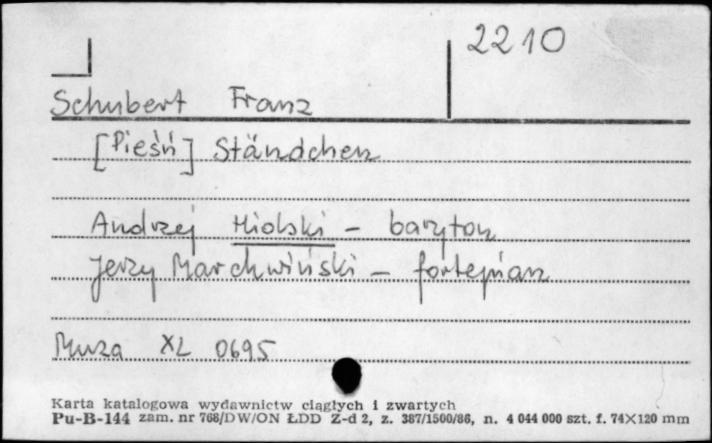 2210
Schubert Franz
[Pieśń] Ständchen
Andrzej Hiolski – baryton
Jerzy Marchwiński – fortepian
Muza XL 0695
Karta katalogowa wydawnictw ciągłych i zwartych
Pu-B-144 zam. nr 768/DW/ON ŁDD Z-d 2, z. 387/1500/86, n. 4 044 000 szt. f. 74X120 mm